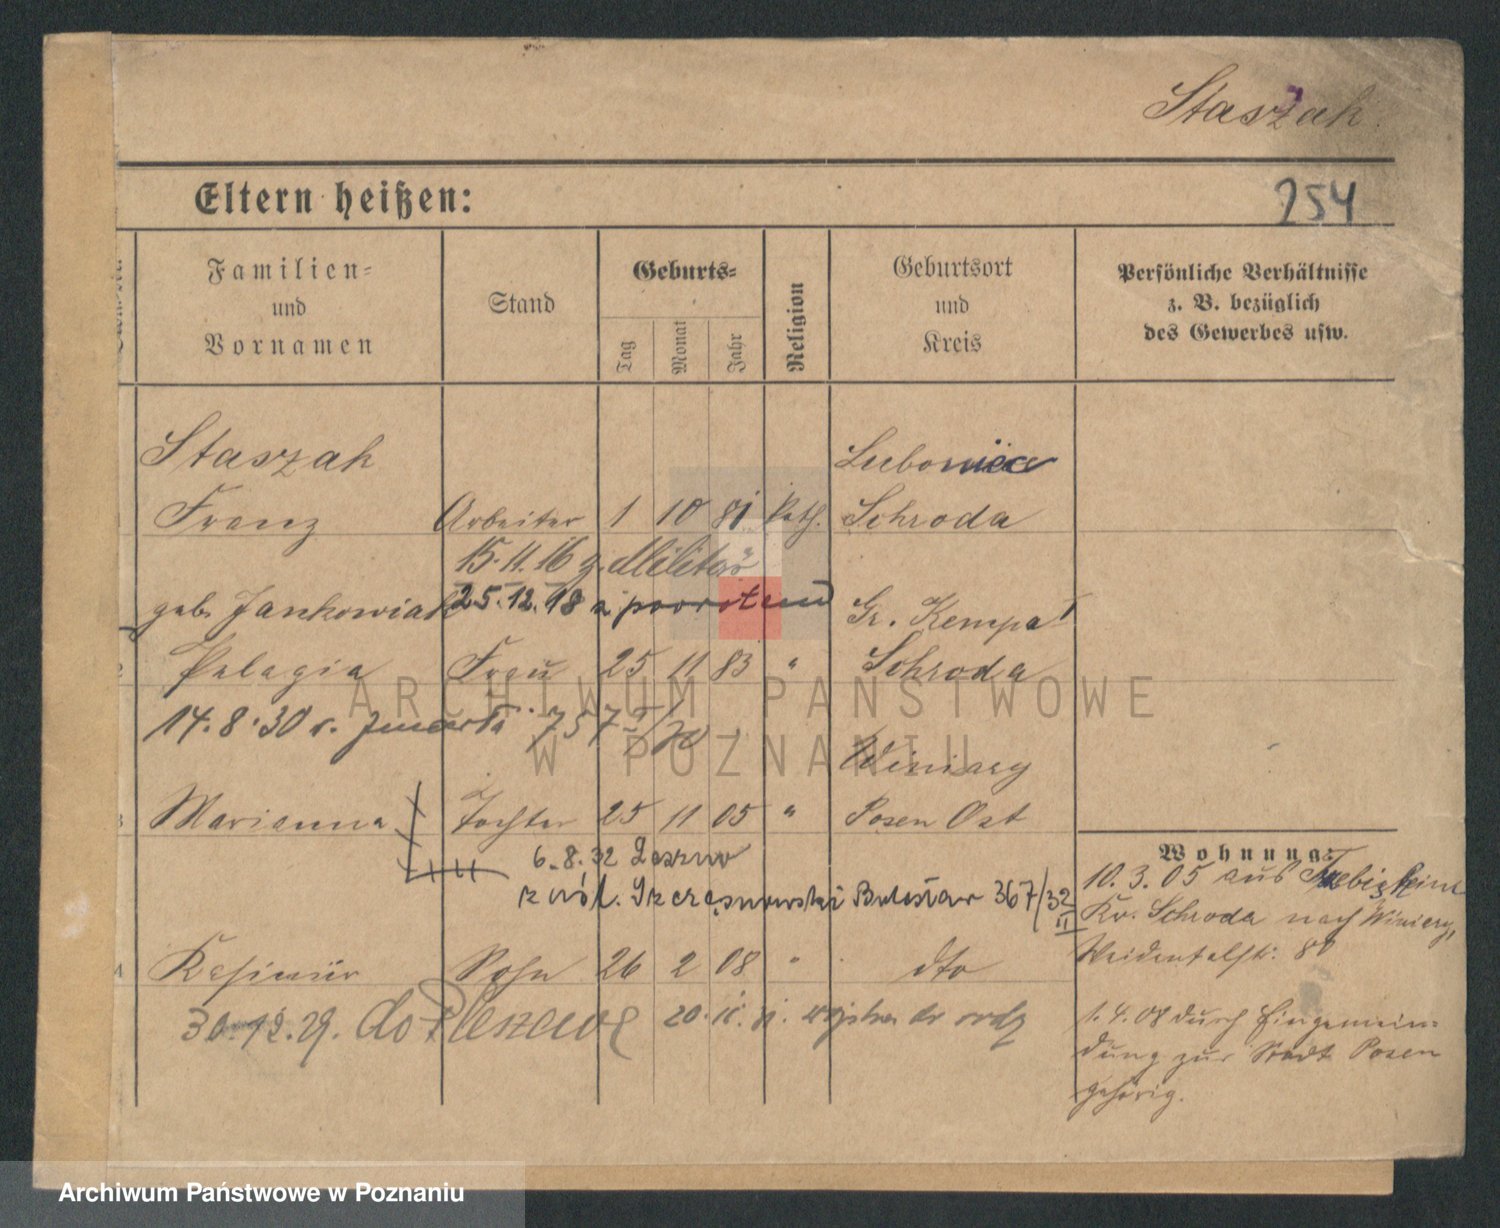 Staszak
Eltern heißen:
254
Familien-
und
Vornamen
Stand
Geburts-
Tag
Monat
Jahr
Religion
Geburtsort
und
Kreis
Persönliche Verhältnisse
z. B. bezüglich
des Gewerbes usw.
Staszak
Luboniec
Franz Arbeiter 1 10 81 kath. Schroda
15.11.16 z. Militär
25.12.18 z powrotem
geb. Jankowiak Gr. Kempa
2 Pelagia Frau 25 11 83 " Schroda
14.8.30 r. zmarła 757
Winiary
3 Marianna Tochter 25 11 05 " Posen Ost
6.8.32 Leszno
367/32
III
4 Kasimir Sohn 26 2 08 " dto
30.12.29. do Pleszewa
20. 11. 31.
Wohnung:
10.3.05 aus
Kr. Schroda nach Winiary,
Weidentalstr. 80
1.4.08 durch Eingemein-
dung zur Stadt Posen
gehörig.
ARCHIWUM PAŃSTWOWE
W POZNANIU
Archiwum Państwowe w Poznaniu